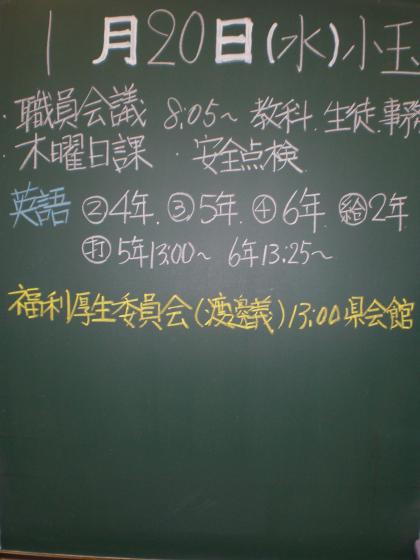 1月20日(水)小玉
・職員会議 8:05～ 教科.生徒.事務
・木曜日課 ・安全点検
英語 ②4年.③5年.④6年.㊕2年
㊞5年13:00～ 6年13:25～
福利厚生委員会(渡義)13:00県会館